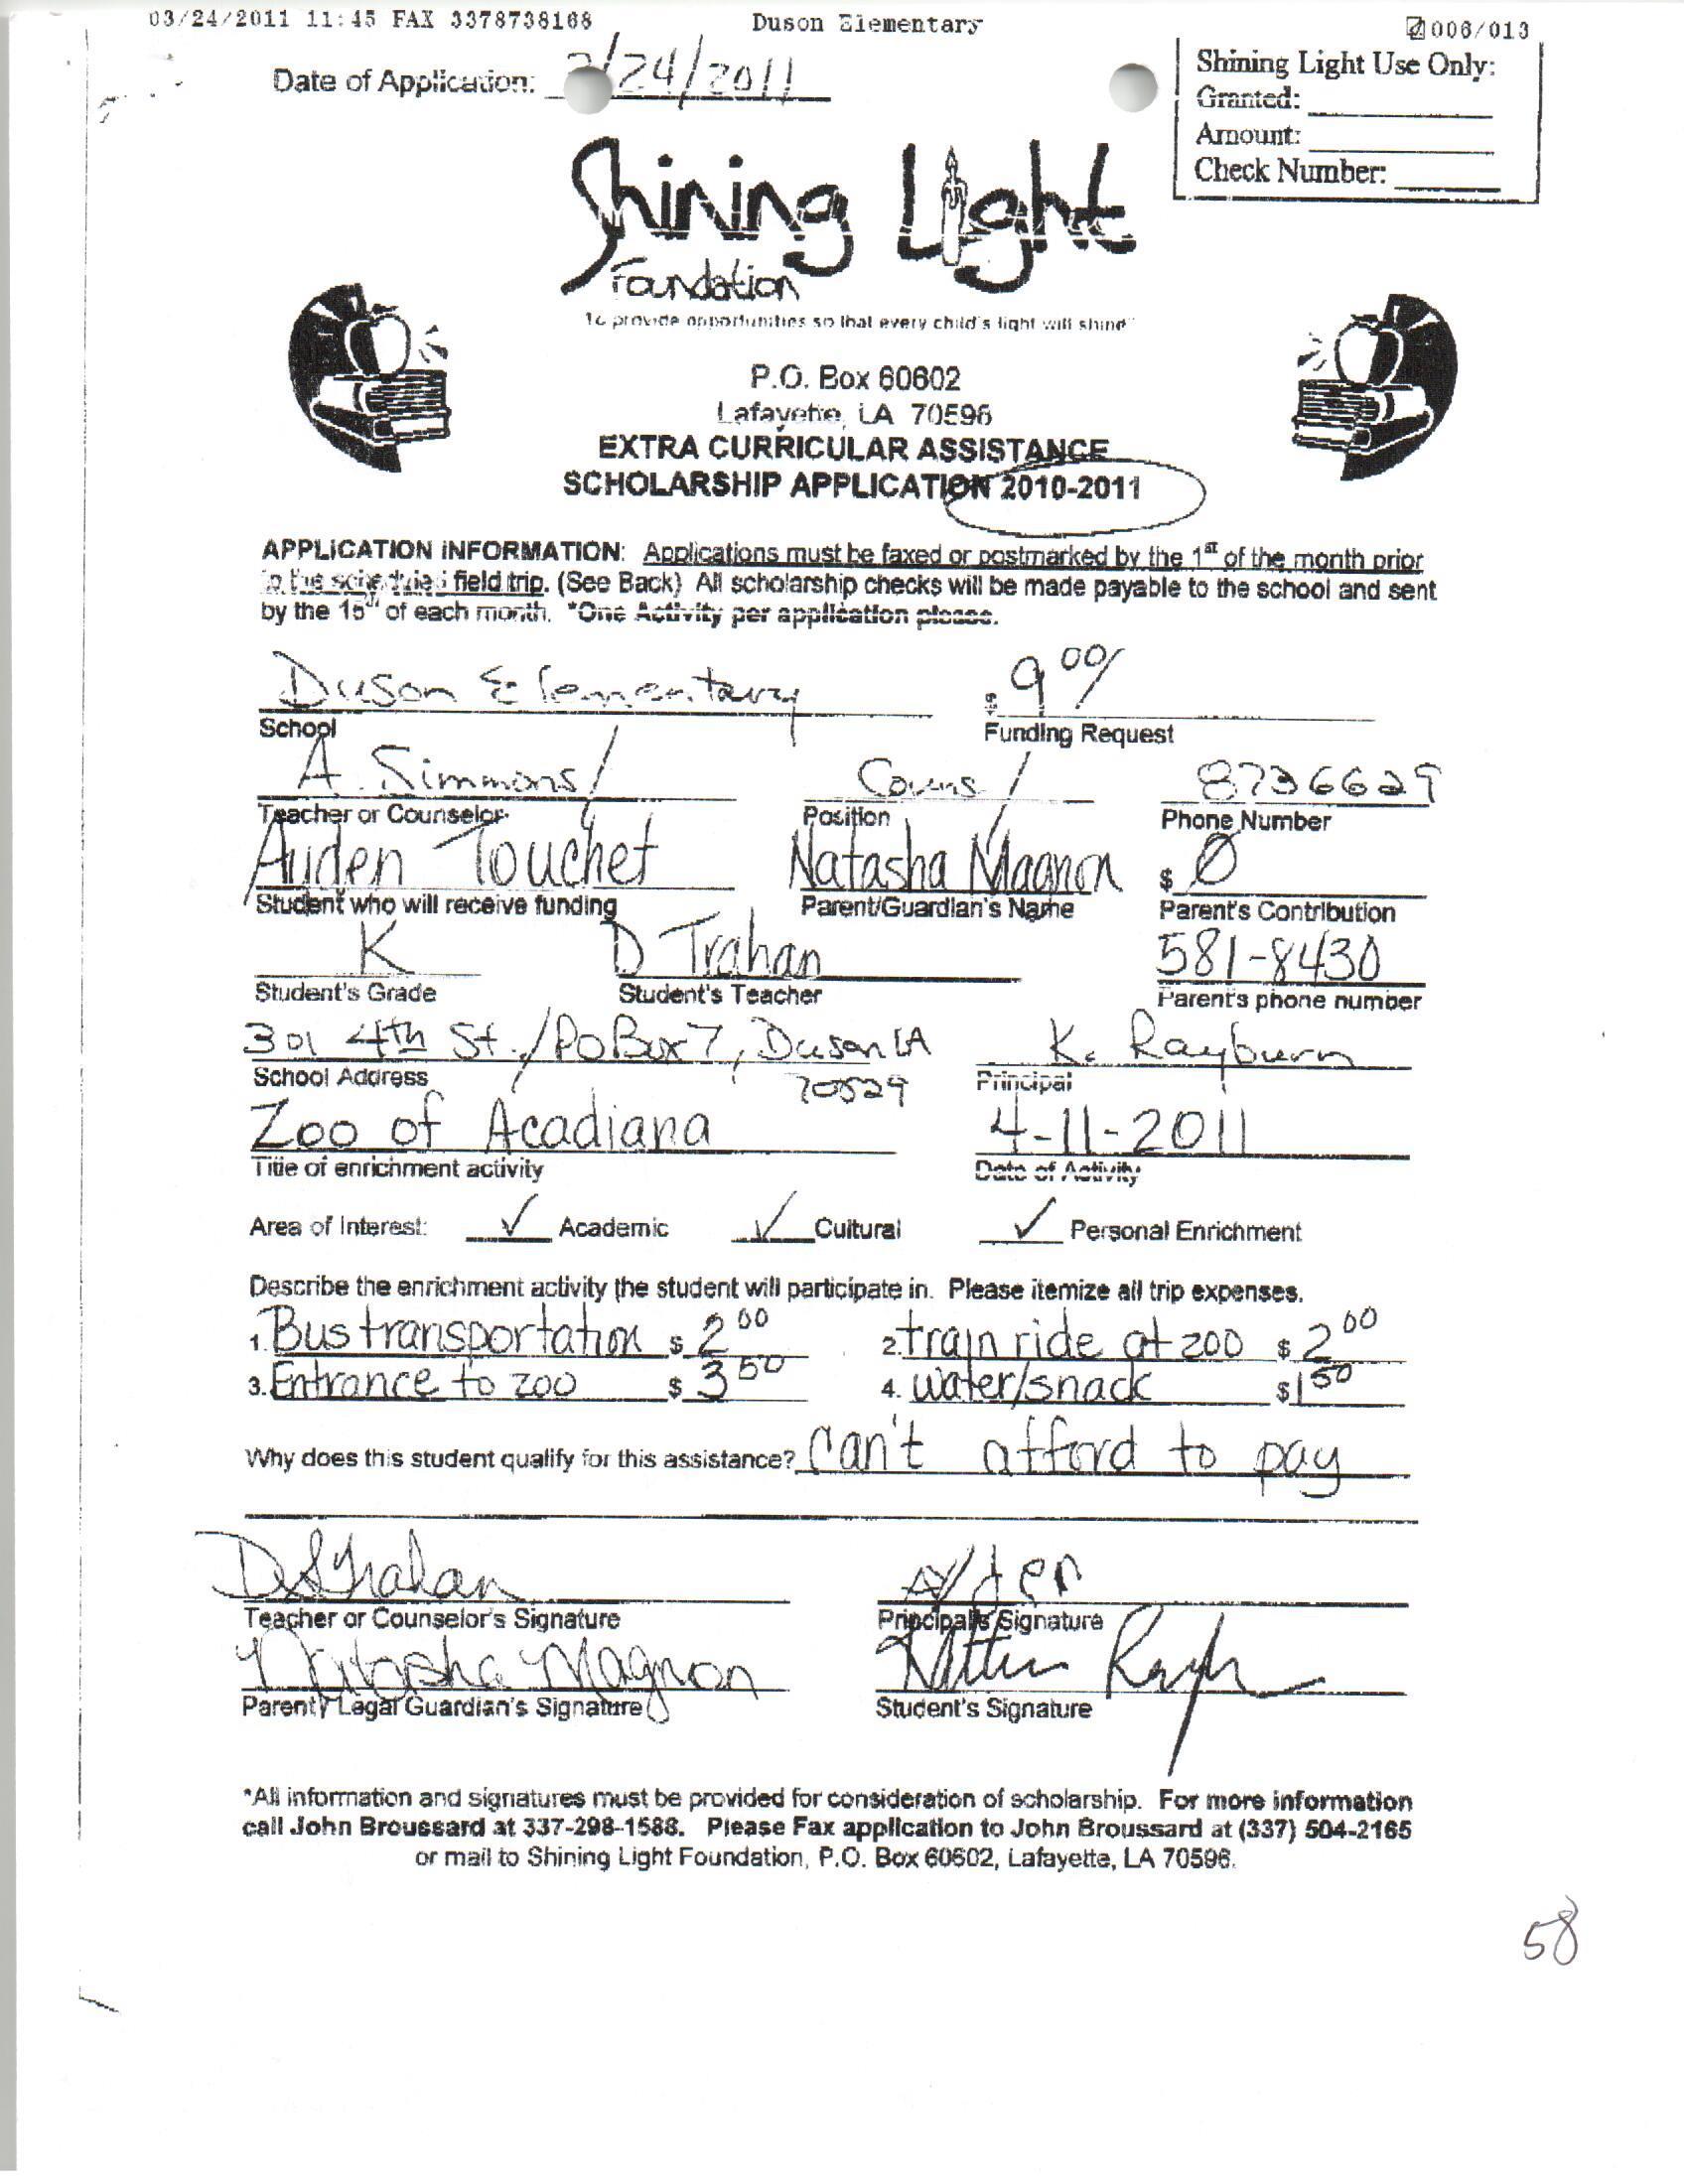 03/24/2011 11:45 FAX 3378738168 Duson Elementary 006/013
Date of Application: 3/24/2011
Shining Light Use Only:
Granted:
Amount:
Check Number:
Shining Light
Foundation
To provide opportunities so that every child's light will shine"
P.O. Box 60602
Lafayette, LA 70596
EXTRA CURRICULAR ASSISTANCE
SCHOLARSHIP APPLICATION 2010-2011
APPLICATION INFORMATION: Applications must be faxed or postmarked by the 1st of the month prior
to the scheduled field trip. (See Back) All scholarship checks will be made payable to the school and sent
by the 15th of each month. *One Activity per application please.
Duson Elementary $ 9 00/
School Funding Request
A. Simmons Couns 8736629
Teacher or Counselor Position Phone Number
Ayden Touchet Natasha Magnon $ 0
Student who will receive funding Parent/Guardian's Name Parent's Contribution
K D Trahan 581-8430
Student's Grade Student's Teacher Parent's phone number
301 4th St./PO Box 7, Duson LA K. Rayburn
School Address 70529 Principal
Zoo of Acadiana 4-11-2011
Title of enrichment activity Date of Activity
Area of Interest: ✓ Academic ✓ Cultural ✓ Personal Enrichment
Describe the enrichment activity the student will participate in. Please itemize all trip expenses.
1. Bus transportation $ 2 00 2. train ride at zoo $ 2 00
3. Entrance to zoo $ 3 50 4. water/snack $ 1 50
Why does this student qualify for this assistance? can't afford to pay
D Trahan Ayden
Teacher or Counselor's Signature Principal's Signature
Natasha Magnon
Parent/ Legal Guardian's Signature Student's Signature
*All information and signatures must be provided for consideration of scholarship. For more information
call John Broussard at 337-298-1588. Please Fax application to John Broussard at (337) 504-2165
or mail to Shining Light Foundation, P.O. Box 60602, Lafayette, LA 70596.
58